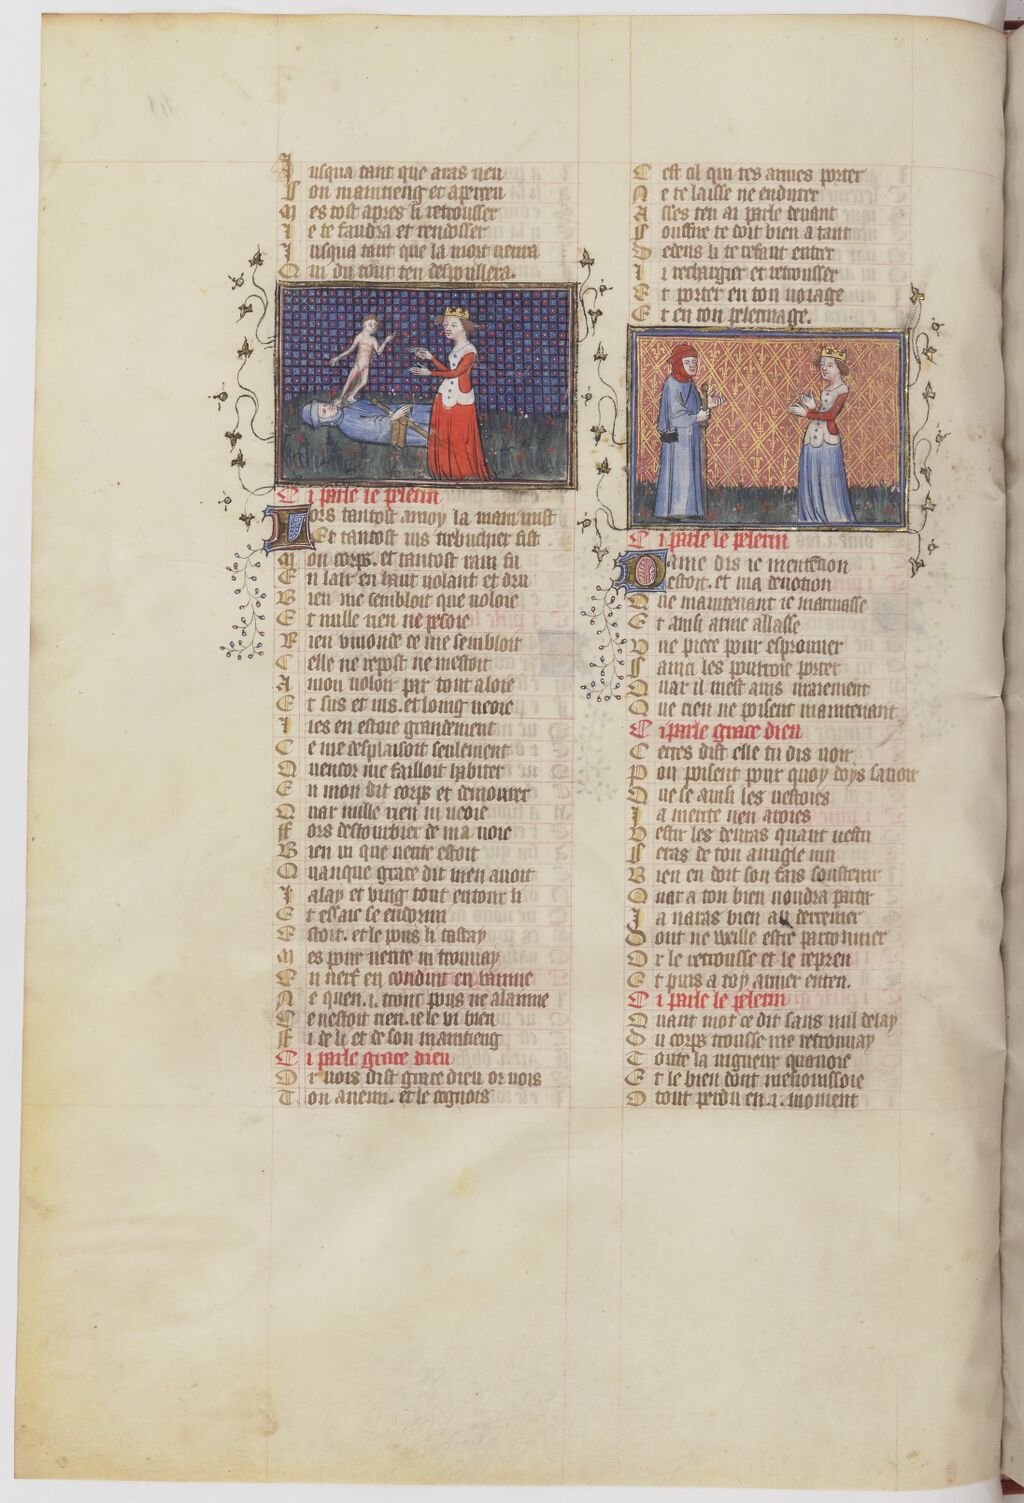 Jusqua tant que aras veu
Son maintieng et aperceu
Mes tost apres li retrousser
Je te faudra et rendosser
Jusqua tant que la mort venra
Qui du tout ten despoullera.
Ci parle le pelerin
Lors tantost a moy la main mist
Et tantost ius trebuchier fist
Mon corps. et tantost ravi fu
En lair en haut volant et dru
Bien me sembloit que voloie
Et nulle rien ne pesoie
Rien vivoNse ce me sembloit
Celle ne repost ne mestoit
A mon voloir par tout aloie
Et sus et ius. et loing veoie
Lies en estoie grandement
Ce me desplaisoit seulement
Quencor me failloit habiter
En mon dit corps et demourer
Quar nulle rien ni veoie
Fors destourbier de ma voie
Bien vi que verite estoit
Quanque grace dit men avoit
Jalay et ving tout entour li
Et essaie se endormi
Estoit. et le pous li tastay
Mes pour verite ni trouvay
En nerf en conduit en vainne
Ne quen .i. tronc pous ne alainne
Ce nestoit rien. ie le vi bien
Fi de li et de son maintieng
Ci parle grace dieu
Or vois dist grace dieu or vois
Ton anemi. et le cognois
Cest cil qui tes armes porter
Ne te laisse ne endurer
Asses ten ai parle devant
Souffire te doit bien a tant
Dedens li te refaut entrer
Li rechargier et retrousser
Et porter en ton voiage
Et en ton pelerinage.
Ci parle le pelerin
Dame dis ie mentencion
estoit. et ma devotion
Que maintenant ie marmasse
Et ainsi arme allasse
Une piece pour esprouver
Sainci les pourroie porter
Quar il mest avis vraiement
Que rien ne poisent maintenant
Ci parle grace dieu
Certes dist elle tu dis voir
Pou poisent pour quoy doys savoir
Que se ainsi les vestoies
Ja merite nen aroies
Vestir les devras quant vestu
Seras de ton avugle nu
Bien en doit son fais soustenir
Quar a ton bien voudra partir
Ja naras bien au derrenier
Dont ne weille estre parconnier
Or le retrousse et le repren
Et puis a toy armer enten.
Ci parle le pelerin
Quant mot ce dit sans nul delay
Du corps trousse me retrouvay
Toute la vigueur quavoie
Et le bien dont mesiouissoie
O tout perdu en .i. moment